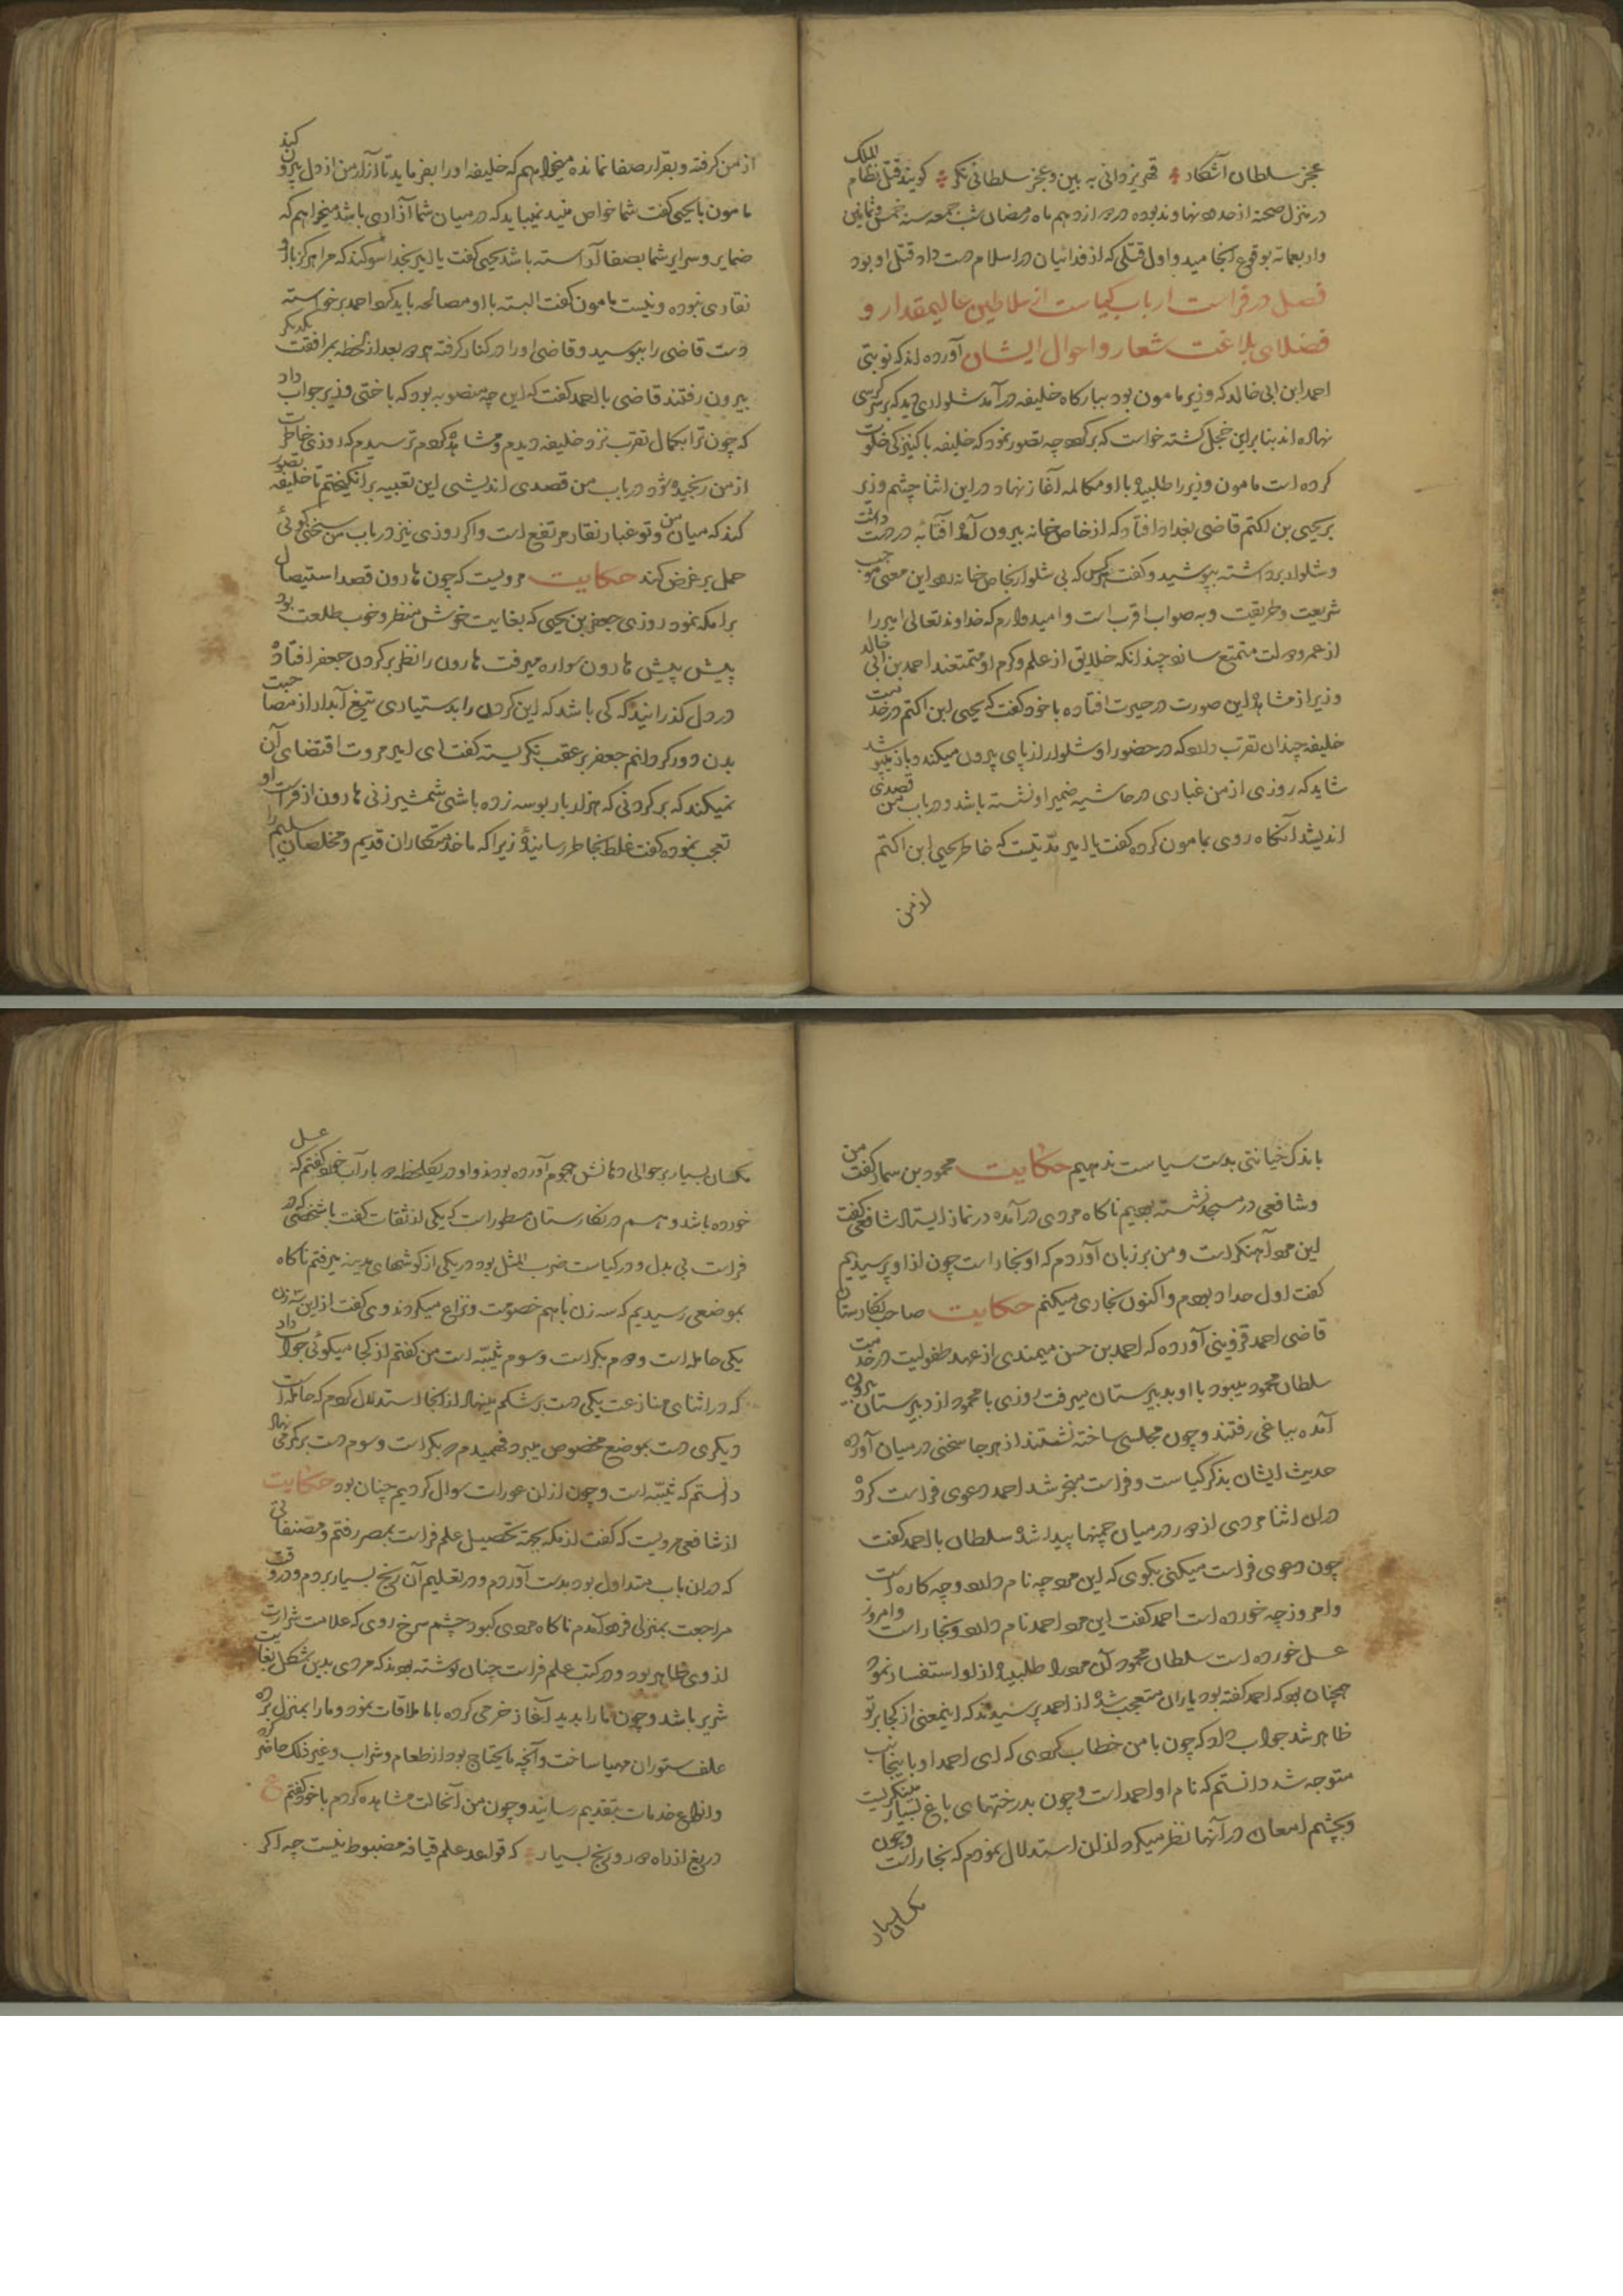 عجز سلطان آشکار قهر یزدانی به بین و عجز سلطانی نکر کویند قتل نظام الملک
در منزل صحنه از حدود نهاوند بوده در دوازدهم ماه رمضان شب جمعه سنه خمس و ثمانین
و اربعمائه بوقوع انجامید و اول قتلی که از فدائیان در اسلام دست داد قتل او بود
فصل در فراست ارباب کیاست از سلاطین عالیمقدار و
فضلای بلاغت شعار و احوال ایشان آورده اند که نوبتی
احمد ابن ابی خالد که وزیر مامون بود ببارکاه خلیفه در آمد شلواری دید که بر سر کرسی
نهاده اند بنا براین خجل کشته خواست که بر کردد چه تصور نمود که خلیفه با کنیزکی خلوت
کرده است مامون وزیر را طلبیده با او مکالمه آغاز نهاد در این اثنا چشم وزیر
بر یحیی بن اکثم قاضی بغداد افتاد که از خاص خانه بیرون آمد آفتابه در دست داشت
و شلوار برداشته بپوشید و کفت هرکس که بی شلوار بخاص خانه رود این معنی موجب
شریعت و طریقت و به صواب اقرب است و امیدوارم که خداوند تعالی امیر را
از عمر و دولت متمتع سازد چندانکه خلایق از علم و کرم او متمتعند احمد بن ابی خالد
وزیر از مشاهده این صورت در حیرت افتاده با خود کفت که یحیی ابن اکثم در خدمت
خلیفه چندان تقرب دارد که در حضور او شلوار از پای بیرون میکند و باز میپوشد
شاید که روزی از من غباری در حاشیه ضمیر او نشسته باشد و در باب من قصدی
اندیشد آنکاه روی بمامون کرده کفت یا امیر مدتیست که خاطر یحیی ابن اکثم
از من
از من کرفته و بقرار صفا نمانده میخواهم که خلیفه او را بفرماید تا آزار من از دل بیرون کند
مامون با یحیی کفت شما خواص منید نمیباید که در میان شما آزاری باشد میخواهم که
ضمایر و سرایر شما بصفا آراسته باشد یحیی کفت یا امیر بخدا سوکند که مرا هرکز با او
نقاری نبوده و نیست مامون کفت البته با او مصالحه باید کرد احمد برخواسته
دست قاضی را ببوسید و قاضی او را در کنار کرفته هر دو بعد از لحظه بمرافقت یکدیکر
بیرون رفتند قاضی با احمد کفت که این چه منصوبه بود که باختی وزیر جواب داد
که چون ترا بکمال تقرب نزد خلیفه دیدم و مشاهده کردم ترسیدم که روزی خاطرت
از من رنجیده شود در باب من قصدی اندیشی این تعبیه برانکیختم تا خلیفه تصور
کند که میان من و تو غبار نقار مرتفع است و اکر روزی نیز در باب من سخنی کوئی
حمل بر غرض کند حکایت مرویست که چون هارون قصد استیصال
برامکه نمود روزی جعفر بن یحیی که بغایت خوش منظر و خوب طلعت بود
پیش پیش هارون سواره میرفت هارون را نظر بر کردن جعفر افتاده
در دل کذرانید که کی باشد که این کردن را بدستیاری تیغ آبدار از مصاحبت
بدن دور کردانم جعفر بر عقب نکریسته کفت ای امیر مروت اقتضای آن
نمیکند که بر کردنی که هزار بار بوسه زده باشی شمشیر زنی هارون از فراست او
تعجب نموده کفت غلط بخاطر رسانیده زیرا که ما خدمتکاران قدیم و مخلصان سلیم را
باندک خیانتی بدست سیاست ندهیم حکایت محمود بن سماد کفت من
و شافعی در مسجد نشسته بودیم ناکاه مردی در آمده در نماز ایستاد شافعی کفت
این مرد آهنکر است و من بر زبان آوردم که او نجار است چون از او پرسیدیم
کفت اول حداد بودم و اکنون نجاری میکنم حکایت صاحب نکارستان
قاضی احمد قزوینی آورده که احمد بن حسن میمندی از عهد طفولیت در خدمت
سلطان محمود میبود با او بدبیرستان میرفت روزی با محمود از دبیرستان بیرون
آمده بباغی رفتند و چون مجلسی ساخته نشستند از هر جا سخنی در میان آورده
حدیث ایشان بذکر کیاست و فراست منجر شد احمد دعوی فراست کرد
در این اثنا مردی از دور در میان چمنها پیدا شده سلطان با احمد کفت
چون دعوی فراست میکنی بکوی که این مرد چه نام دارد و چه کاره است
و امروز چه خورده است احمد کفت این مرد احمد نام دارد و نجار است و امروز
عسل خورده است سلطان محمود آن مرد را طلبیده از او استفسار نمود
همچنان بود که احمد کفته بود یاران متعجب شده از احمد پرسیدند که اینمعنی از کجا بر تو
ظاهر شد جواب داد که چون با من خطاب کردی که ای احمد او باینجانب
متوجه شد دانستم که نام او احمد است و چون بدرختهای باغ بسیار مینکریست
و بچشم امعان در آنها نظر میکرد از آن استدلال نمودم که نجار است و چون
مکسان بسیار
مکسان بسیار بر حوالی دهانش هجوم آورده بودند و او در یکلحظه دو بار آب خورد کفتم که عسل
خورده باشد و هم در نکارستان مسطور است که یکی از ثقات کفت با شخصی که در
فراست بی بدل و در کیاست ضرب المثل بود در یکی از کوشهای مدینه میرفتم ناکاه
بموضعی رسیدیم که سه زن باهم خصومت و نزاع میکردند وی کفت از این سه زن
یکی حامله است و دوم بکر است و سوم ثیبه است من کفتم از کجا میکوئی جواب داد
که در اثنای منازعت یکی دست بر شکم مینهاد از آنجا استدلال کردم که حامله است
و دیکری دست بموضع مخصوص میبرد فهمیدم که بکر است و سوم دست بر کمر می نهاد
دانستم که ثیبه است و چون از آن عورات سوال کردیم چنان بود حکایت
از شافعی مرویست که کفت از مکه بجهة تحصیل علم فراست بمصر رفتم و مصنفاتی
که در این باب متداول بود بدست آوردم و در تعلیم آن رنج بسیار بردم و در وقت
مراجعت بمنزلی فرود آمدم ناکاه مردی کبود چشم سرخ روی که علامت شرارت
از وی ظاهر بود و در کتب علم فراست چنان نوشته بودند که مردی بدین شکل بغایت
شریر باشد و چون مارا بدید آغاز خرمی کرده با ما ملاقات نمود و مارا بمنزل برده
علف ستوران مهیا ساخت و آنچه مایحتاج بود از طعام و شراب و غیر ذلک حاضر کرد
و انواع خدمات بتقدیم رسانید و چون من آنحالت مشاهده کردم با خود کفتم ع
دریغ از راه دور و رنج بسیار که قواعد علم قیافه مضبوط نیست چه اکر